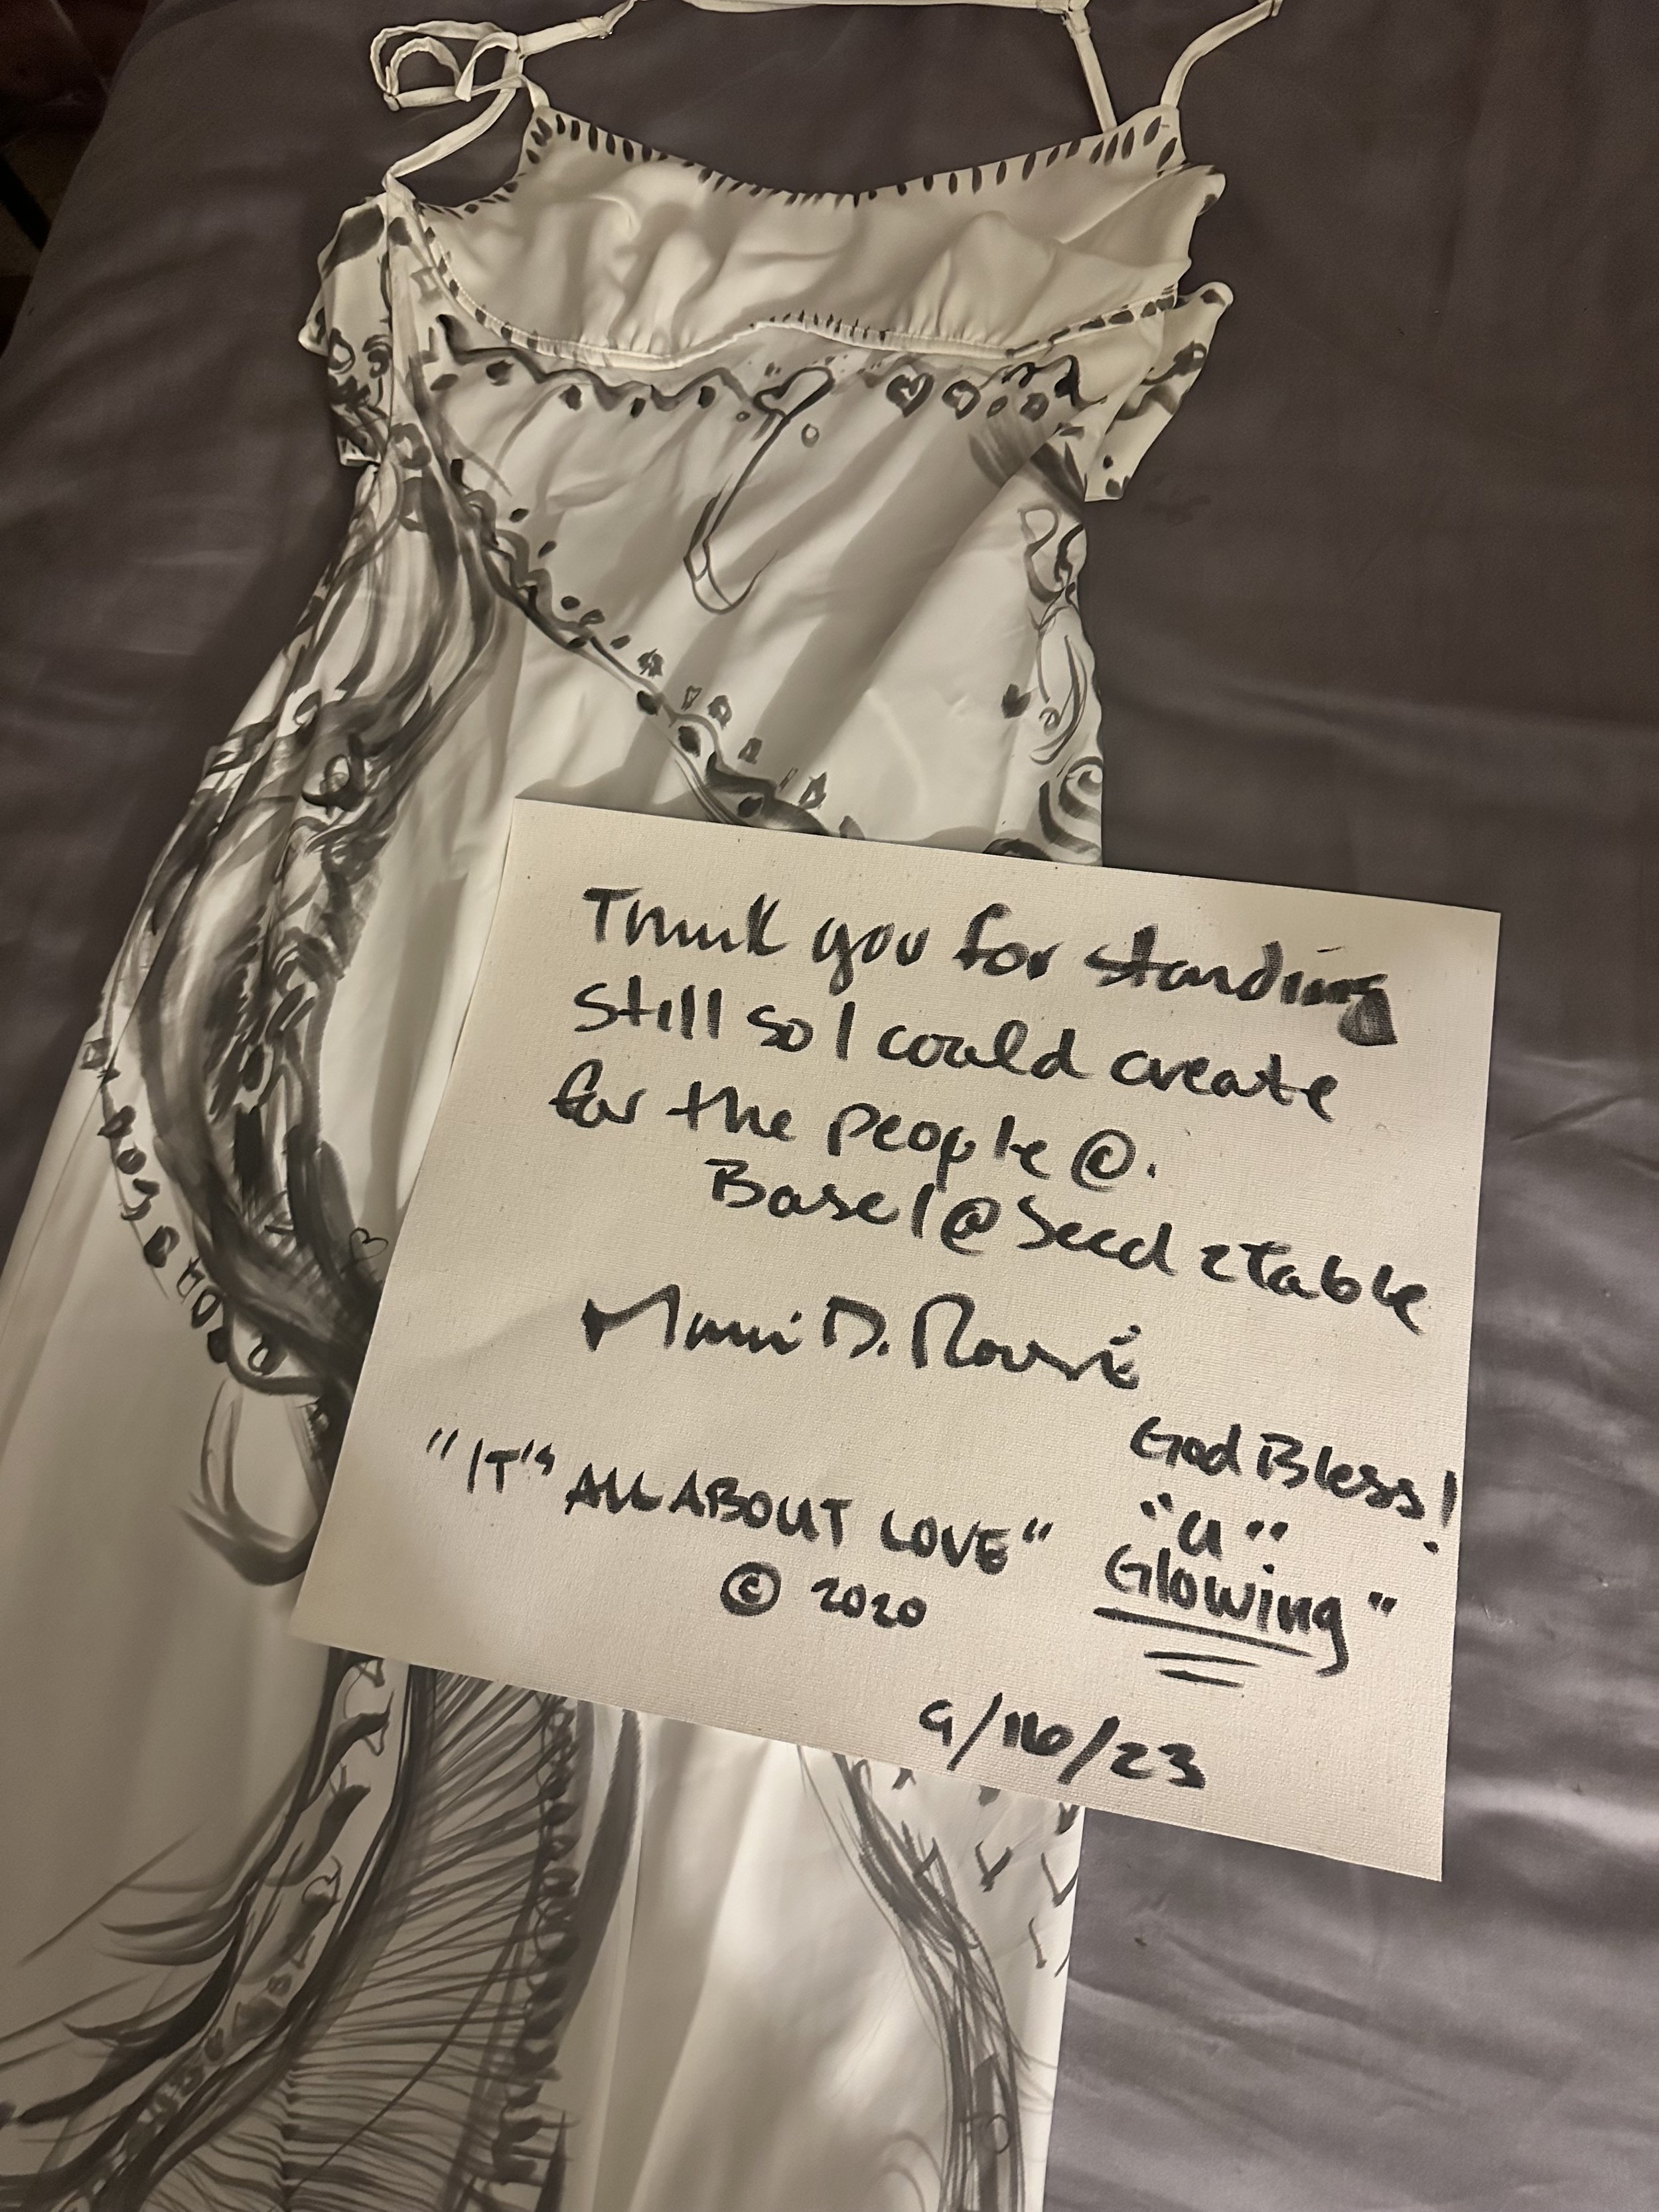 Thank you for standing
Still so I could create
for the people @.
Basel @ Seed 2 table
"IT's ALL ABOUT LOVE"
© 2020
God Bless!
"U"
Glowing"
9/16/23